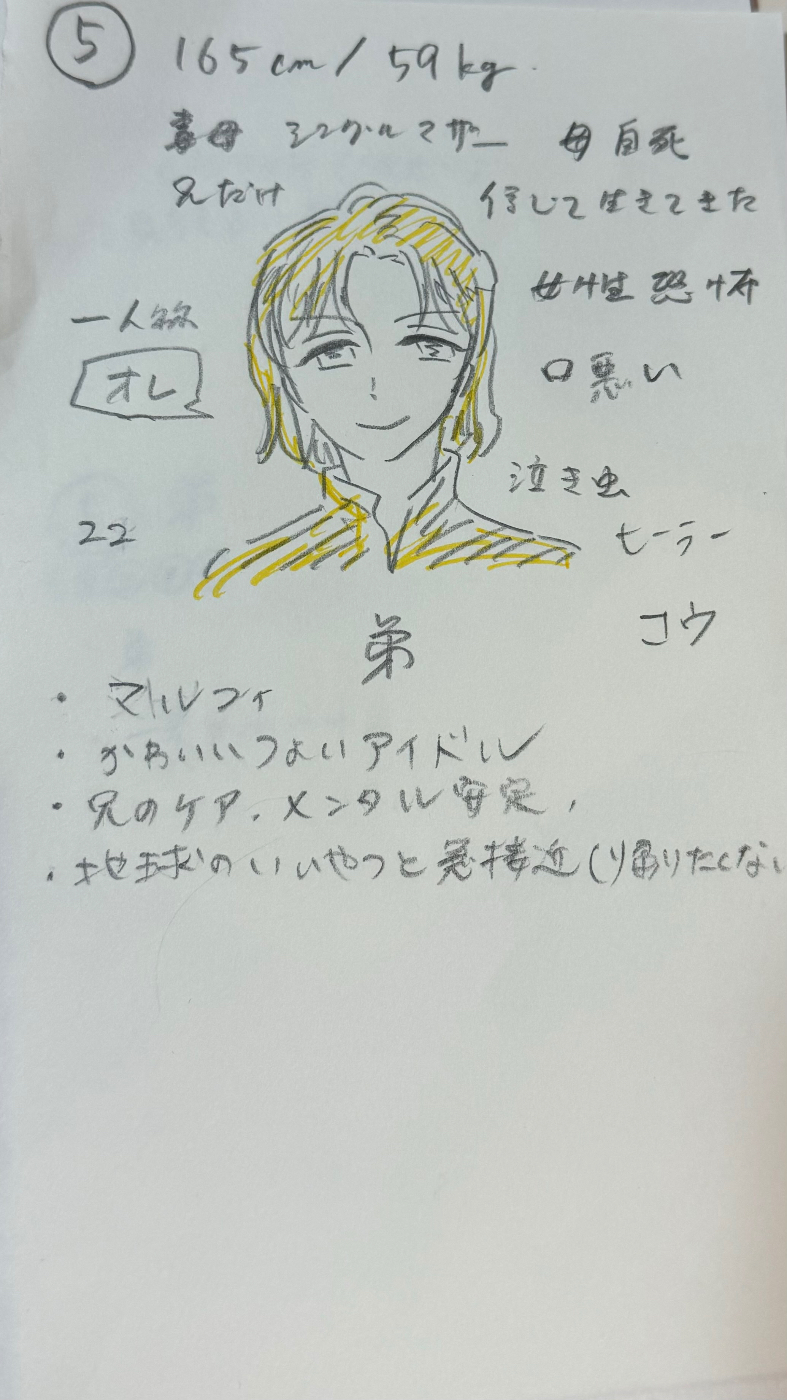 ⑤ 165cm / 59kg.
毒母 シングルマザー 母自死
兄だけ 信じて生きてきた
女性恐怖
一人称
オレ
口悪い
泣き虫
22
ヒーラー
コウ
弟
・マルフィ
・かわいいつよいアイドル
・兄のケア、メンタル安定、
・地球のいいやつと急接近(